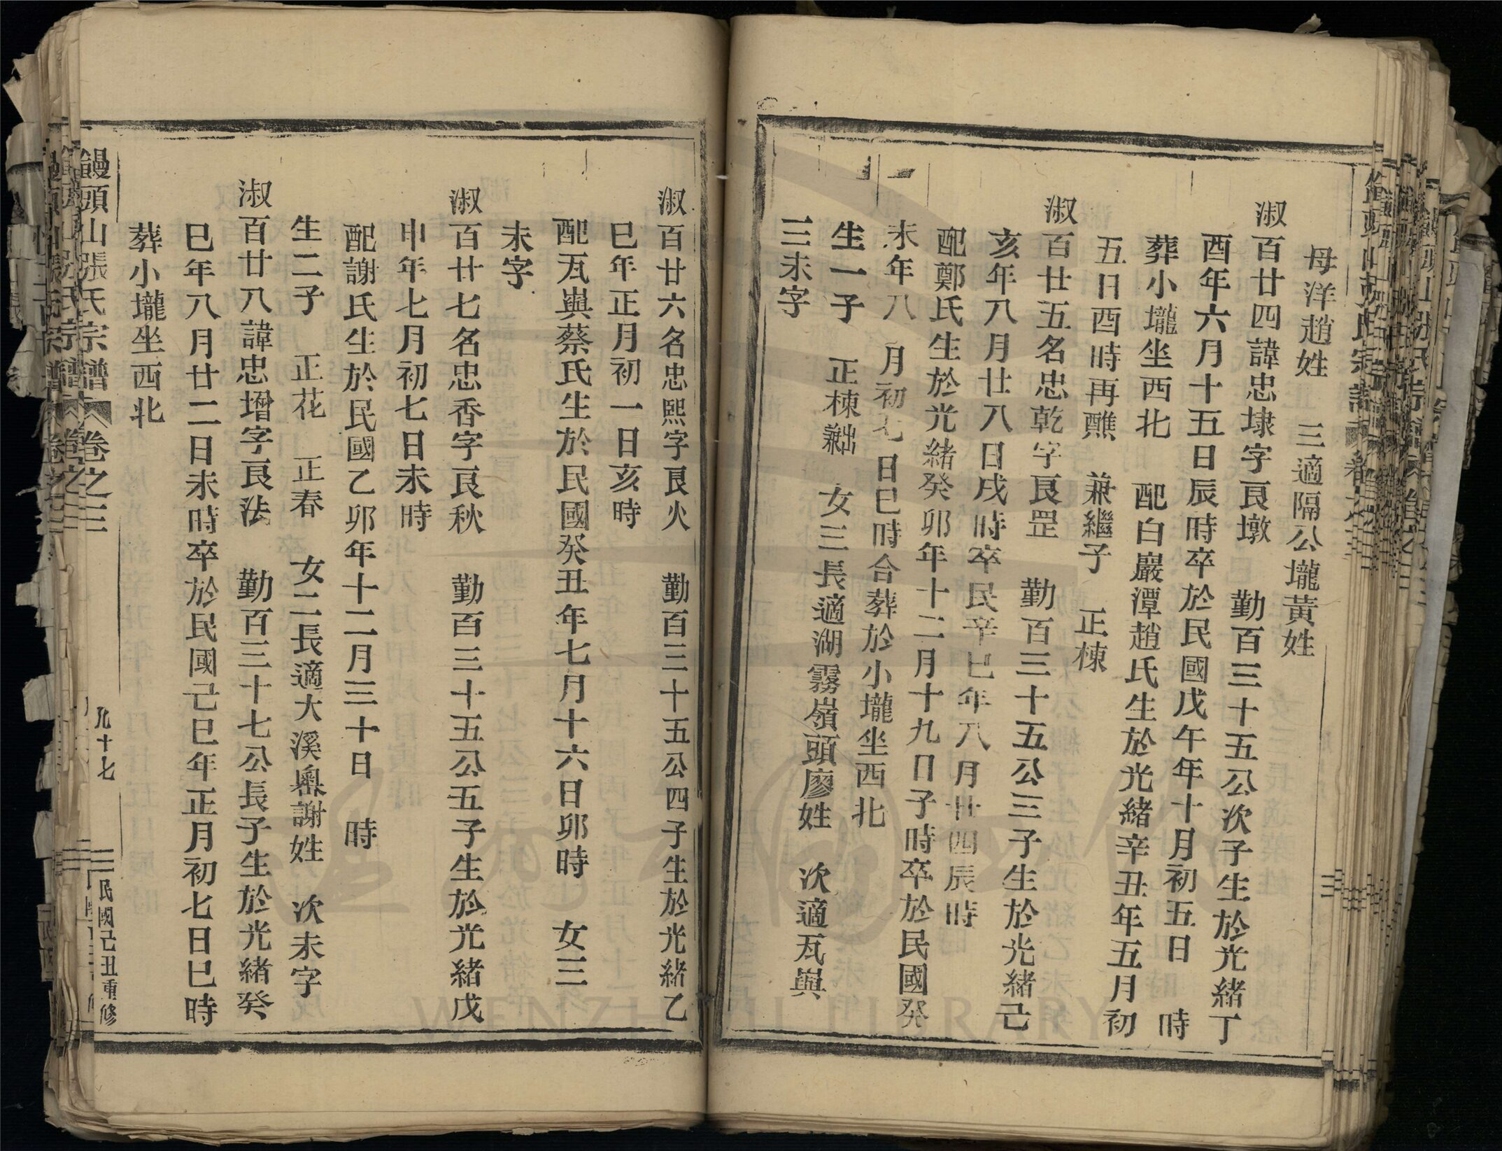 母洋趙姓　三適隔公壠黃姓
淑百廿四諱忠埭字良墩　勤百三十五公次子生於光緒丁
酉年六月十五日辰時卒於民國戊午年十月初五日　時
葬小壠坐西北　配白巖潭趙氏生於光緒辛丑年五月初
五日酉時再醮　兼繼子　正棟
淑百廿五名忠乾字良罡　勤百三十五公三子生於光緒己
亥年八月廿八日戌時卒民辛巳年八月廿四辰時
配鄭氏生於光緒癸卯年十二月十九日子時卒於民國癸
未年八月初七日巳時合葬於小壠坐西北
生一子　正棟　女三長適湖霧嶺頭廖姓　次適瓦與
三未字
淑百廿六名忠熙字良火　勤百三十五公四子生於光緒乙
巳年正月初一日亥時
配瓦與蔡氏生於民國癸丑年七月十六日卯時　女三
未字
淑百廿七名忠香字良秋　勤百三十五公五子生於光緒戊
申年七月初七日未時
配謝氏生於民國乙卯年十二月三十日　時
生二子　正花　正春　女二長適大溪謝姓　次未字
淑百廿八諱忠增字良法　勤百三十七公長子生於光緒癸
巳年八月廿二日未時卒於民國己巳年正月初七日巳時
葬小壠坐西北
饅頭山張氏宗譜　卷之三　九十七　民國己丑重修
WENZHOU LIBRARY